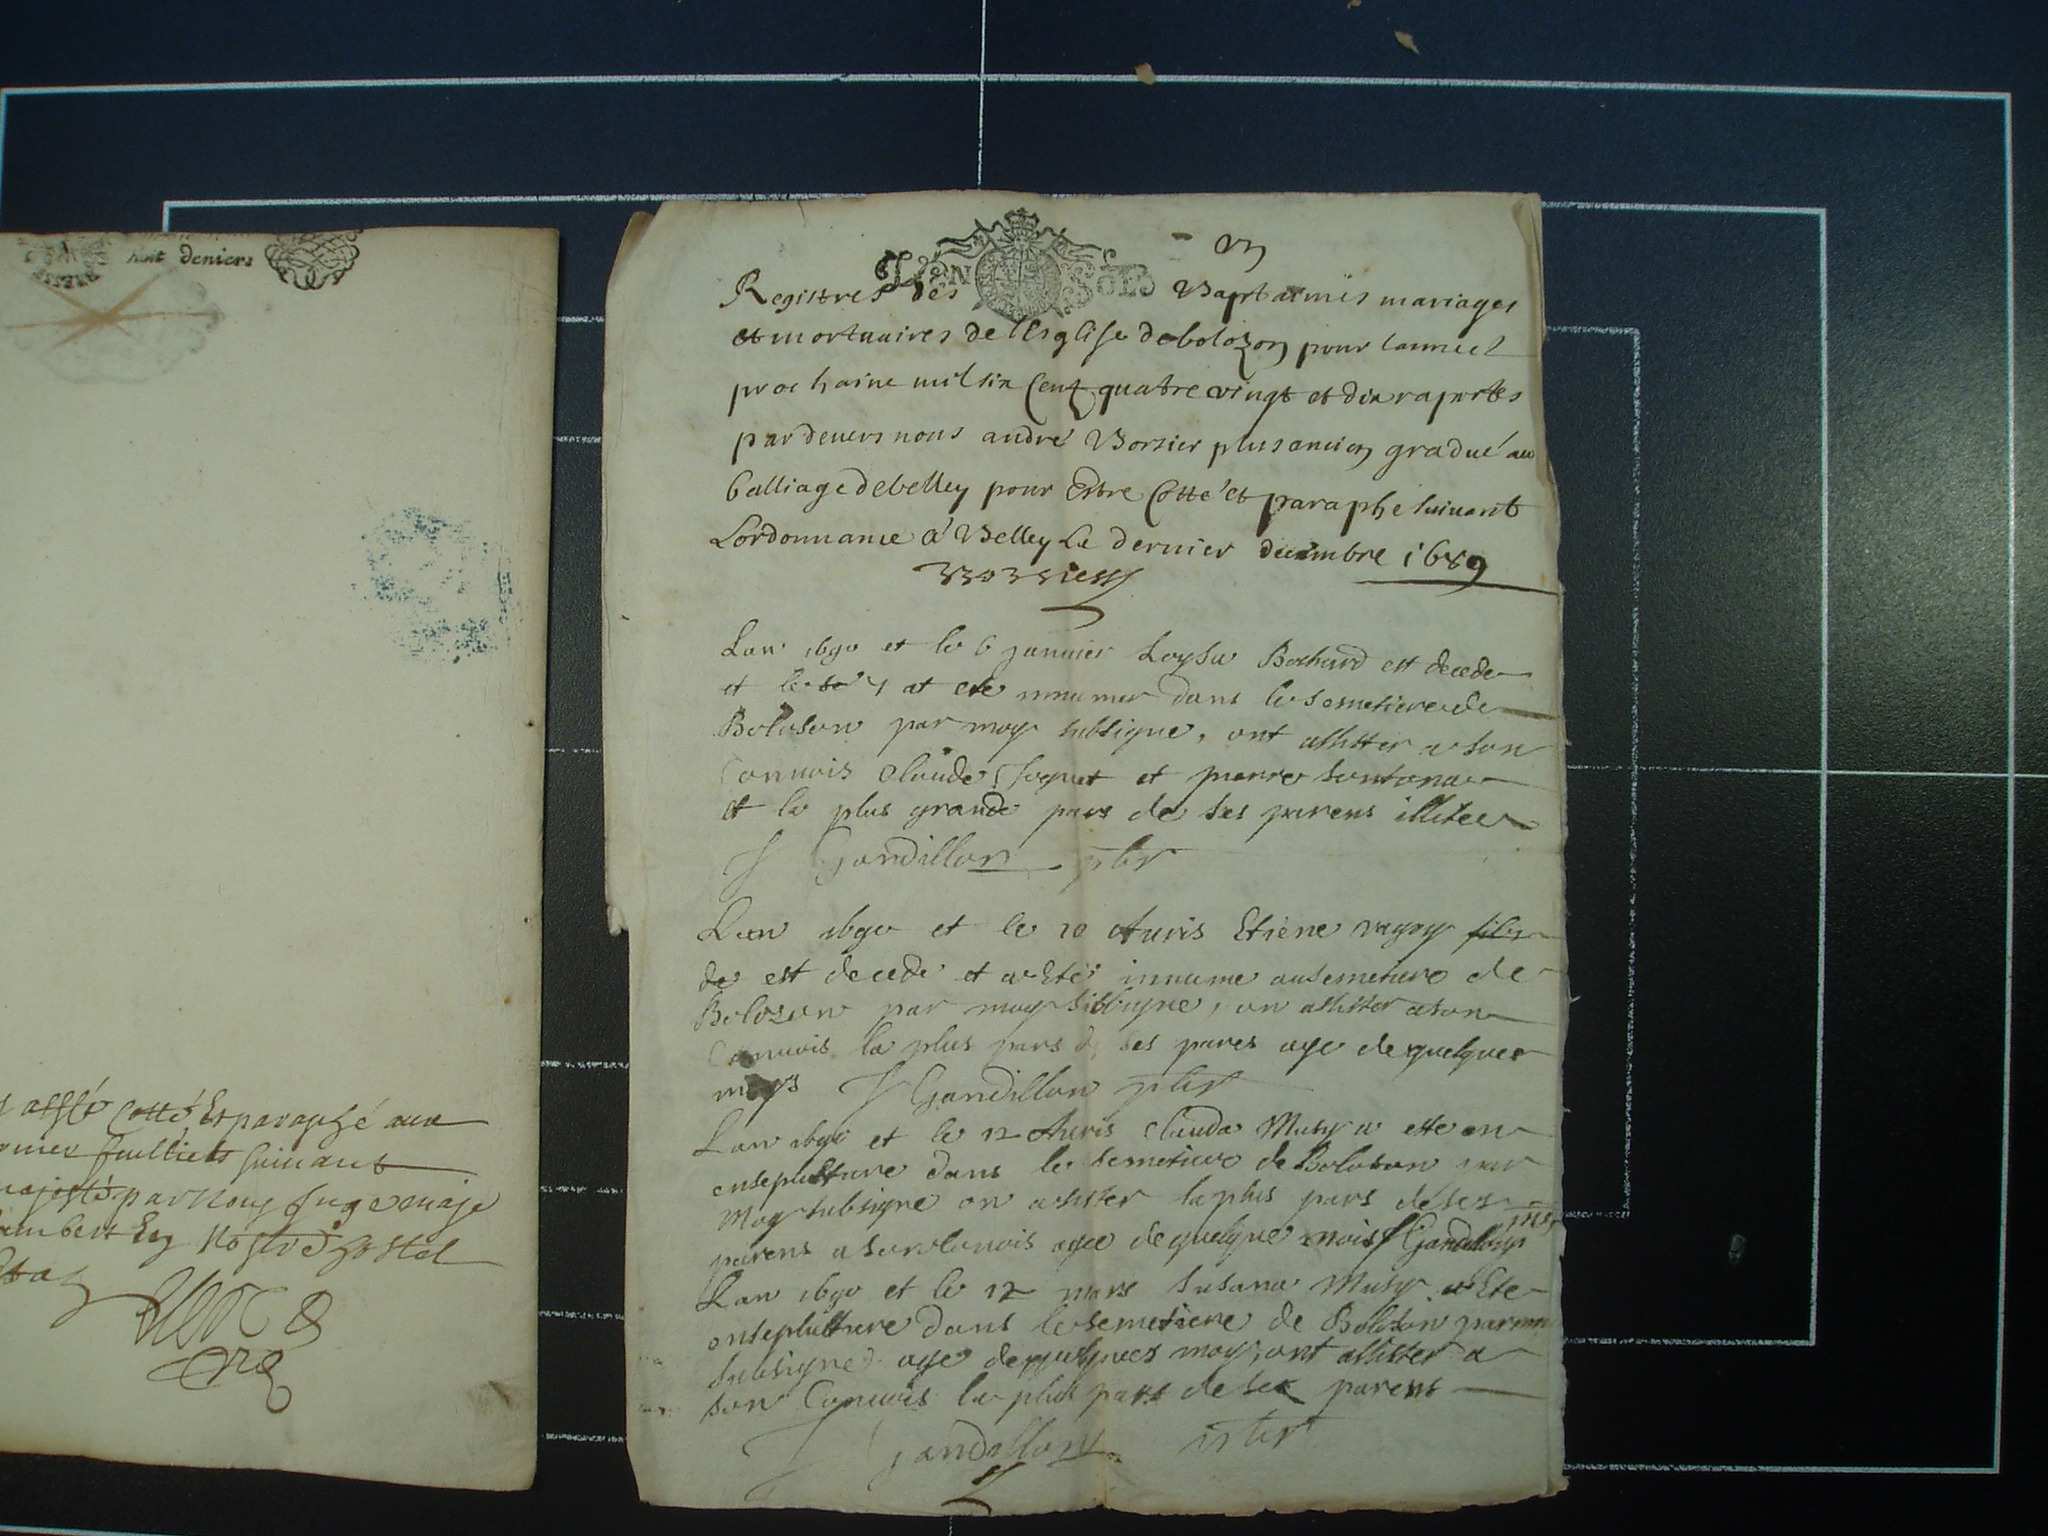 huit deniers
cotté Et paraphé aux
feuilliets suivants
par Nous Juge maje
En Nostre hostel
Un
Registres des Baptaimes mariages
et mortuaires de l'Esglise de bolozon pour lannee
prochaine mil six Cent quatre vingt et dix raportes
par devers nous andré Borsier plus ancien gradué au
balliage de belley pour Estre Cotté et paraphé suivant
Lordonnance á Belley Le dernier decembre 1689
Borsier
Lan 1690 et le 6 janvier Loysa Bochard est decede
et le 7 at ete innumer dans le semetiere de
Boloson par moy subsigne, ont assister a son
Convois Claude et pierre
et la plus grande pars de ses parens illitere
J Gandillon pbr
Lan 1690 et le 10 Avris Etiene fils
de est decede et a Eté innume au semetiere de
Bolozon par moy subsigne, on assister a son
Convois la plus pars de ses pares age de quelques
moys J Gandillon pbr
Lan 1690 et le 12 Avris Clauda Musy a este en
ensepulture dans le semetiere de Boloson par
Moy subsigne on assister la plus pars de ses
parens a son Convois age de quelque mois J Gandillon pbr
Lan 1690 et le 12 mars Susana Musy a Ete
ensepulture dans le semetiere de Boloson par moy
subsigne age de quelques moys, ont assister a
son Convois la plus pars de ses parens
J Gandillon pbr